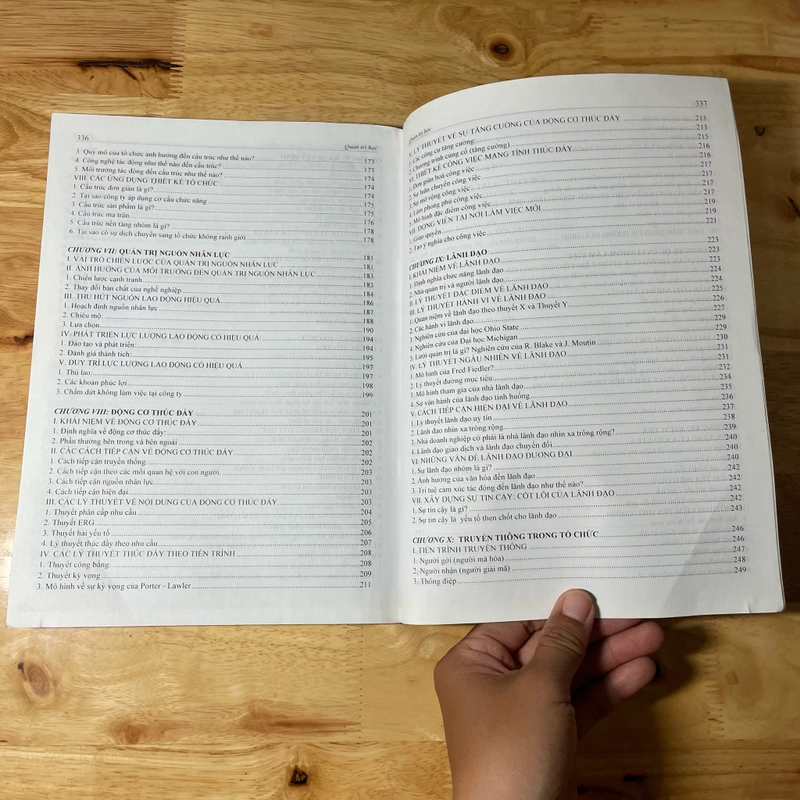 336
Quản trị học
3. Quy mô của tổ chức ảnh hưởng đến cấu trúc như thế nào? 173
4. Công nghệ tác động như thế nào đến cấu trúc? 174
5. Môi trường tác động đến cấu trúc như thế nào? 174
VIII. CÁC ỨNG DỤNG THIẾT KẾ TỔ CHỨC 174
1. Cấu trúc đơn giản là gì? 174
2. Tại sao công ty áp dụng cơ cấu chức năng 175
3. Cấu trúc sản phẩm là gì? 175
4. Cấu trúc ma trận 176
5. Cấu trúc nền tảng nhóm là gì? 178
6. Tại sao có sự dịch chuyển sang tổ chức không ranh giới 178
CHƯƠNG VII: QUẢN TRỊ NGUỒN NHÂN LỰC 181
I. VAI TRÒ CHIẾN LƯỢC CỦA QUẢN TRỊ NGUỒN NHÂN LỰC 181
II. ẢNH HƯỞNG CỦA MÔI TRƯỜNG ĐẾN QUẢN TRỊ NGUỒN NHÂN LỰC 183
1. Chiến lược cạnh tranh 183
2. Thay đổi bản chất của nghề nghiệp 184
III. THU HÚT NGUỒN LAO ĐỘNG HIỆU QUẢ 186
1. Hoạch định nguồn nhân lực 187
2. Chiêu mộ: 188
3. Lựa chọn 190
IV. PHÁT TRIỂN LỰC LƯỢNG LAO ĐỘNG CÓ HIỆU QUẢ: 194
1. Đào tạo và phát triển: 194
2. Đánh giá thành tích: 195
V. DUY TRÌ LỰC LƯỢNG LAO ĐỘNG CÓ HIỆU QUẢ 197
1. Thù lao: 197
2. Các khoản phúc lợi 198
3. Chấm dứt không làm việc tại công ty 199
CHƯƠNG VIII: ĐỘNG CƠ THÚC ĐẨY 201
I. KHÁI NIỆM VỀ ĐỘNG CƠ THÚC ĐẨY 201
1. Định nghĩa về động cơ thúc đẩy: 201
2. Phần thưởng bên trong và bên ngoài 202
II. CÁC CÁCH TIẾP CẬN VỀ ĐỘNG CƠ THÚC ĐẨY 202
1. Cách tiếp cận truyền thống 202
2. Cách tiếp cận theo các mối quan hệ với con người 203
3. Cách tiếp cận nguồn nhân lực 203
4. Cách tiếp cận hiện đại 203
III. CÁC LÝ THUYẾT VỀ NỘI DUNG CỦA ĐỘNG CƠ THÚC ĐẨY 203
1. Thuyết phân cấp nhu cầu 204
2. Thuyết ERG 205
3. Thuyết hai yếu tố 206
4. Lý thuyết thúc đẩy theo nhu cầu 207
IV. CÁC LÝ THUYẾT THÚC ĐẨY THEO TIẾN TRÌNH 208
1. Thuyết công bằng 208
2. Thuyết kỳ vọng 209
3. Mô hình về sự kỳ vọng của Porter - Lawler 211
Quản trị học
337
V. LÝ THUYẾT VỀ SỰ TĂNG CƯỜNG CỦA ĐỘNG CƠ THÚC ĐẨY 213
1. Các công cụ tăng cường 213
2. Chương trình củng cố (tăng cường) 215
VI. THIẾT KẾ CÔNG VIỆC MANG TÍNH THÚC ĐẨY 216
1. Đơn giản hoá công việc 216
2. Sự luân chuyển công việc 217
3. Sự mở rộng công việc 217
4. Làm phong phú công việc 217
5. Mô hình đặc điểm công việc 217
VII. ĐỘNG VIÊN TẠI NƠI LÀM VIỆC MỚI 219
1. Giao quyền 219
2. Tạo ý nghĩa cho công việc 221
CHƯƠNG IX: LÃNH ĐẠO 223
I. KHÁI NIỆM VỀ LÃNH ĐẠO 223
1. Định nghĩa chức năng lãnh đạo 223
2. Nhà quản trị và người lãnh đạo 224
II. LÝ THUYẾT ĐẶC ĐIỂM VỀ LÃNH ĐẠO 224
III. LÝ THUYẾT HÀNH VI VỀ LÃNH ĐẠO 225
1. Quan niệm về lãnh đạo theo thuyết X và Thuyết Y 226
2. Các hành vi lãnh đạo 227
3. Nghiên cứu của đại học Ohio State 229
4. Nghiên cứu của Đại học Michigan 229
5. Lưới quản trị là gì? Nghiên cứu của R. Blake và J. Moutin 230
IV. LÝ THUYẾT NGẪU NHIÊN VỀ LÃNH ĐẠO 231
1. Mô hình của Fred Fiedler? 232
2. Lý thuyết đường mục tiêu 234
3. Mô hình tham gia của nhà lãnh đạo 235
4. Sự vận hành của lãnh đạo tình huống 236
V. CÁCH TIẾP CẬN HIỆN ĐẠI VỀ LÃNH ĐẠO 237
1. Lý thuyết lãnh đạo uy tín 237
2. Lãnh đạo nhìn xa trông rộng 238
3. Nhà doanh nghiệp có phải là nhà lãnh đạo nhìn xa trông rộng? 239
4. Lãnh đạo giao dịch và lãnh đạo chuyển đổi 240
VI. NHỮNG VẤN ĐỀ LÃNH ĐẠO ĐƯƠNG ĐẠI 240
1. Sự lãnh đạo nhóm là gì? 240
2. Ảnh hưởng của văn hóa đến lãnh đạo 242
3. Trí tuệ cảm xúc tác động đến lãnh đạo như thế nào? 242
VII. XÂY DỰNG SỰ TIN CẬY: CỐT LÕI CỦA LÃNH ĐẠO 242
1. Sự tin cậy là gì? 242
2. Sự tin cậy là yếu tố then chốt cho lãnh đạo 243
CHƯƠNG X: TRUYỀN THÔNG TRONG TỔ CHỨC 246
I. TIẾN TRÌNH TRUYỀN THÔNG 246
1. Người gởi (người mã hóa) 247
2. Người nhận (người giải mã) 248
3. Thông điệp 249